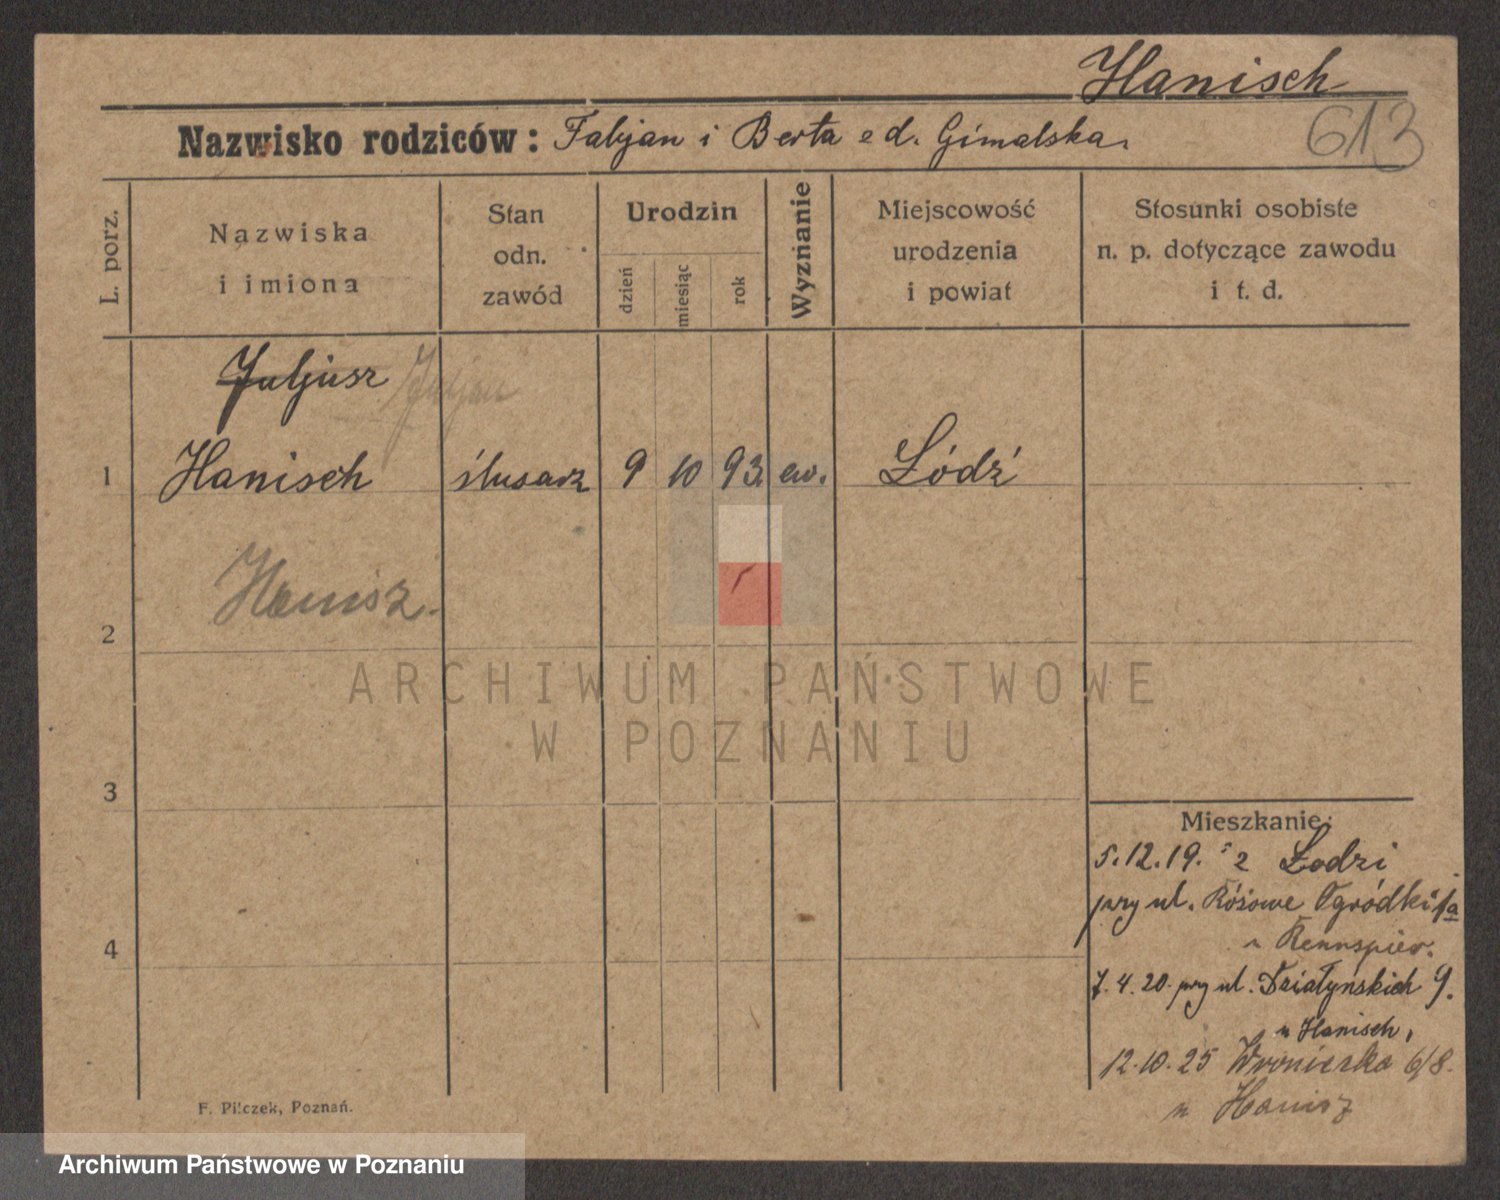 Hanisch
613
Nazwisko rodziców: Fabjan i Berta ed. Gimalska.
L. porz.
Nazwiska
i imiona
Stan
odn.
zawód
Urodzin
dzień
miesiąc
rok
Wyznanie
Miejscowość
urodzenia
i powiat
Stosunki osobiste
n. p. dotyczące zawodu
i t. d.
Juljusz Juljan
1 Hanisch ślusarz 9 10 93 ew. Łódź
Hanisz.
2
3
4
Mieszkanie:
5.12.19. z Łodzi
przy ul. Różowe Ogródki 1a
7.4.20. przy ul. Działyńskich 9.
u Hanisch,
12.10.25 Wroniecka 6/8.
u Hanisz
F. Pilczek, Poznań.
ARCHIWUM PAŃSTWOWE
W POZNANIU
Archiwum Państwowe w Poznaniu